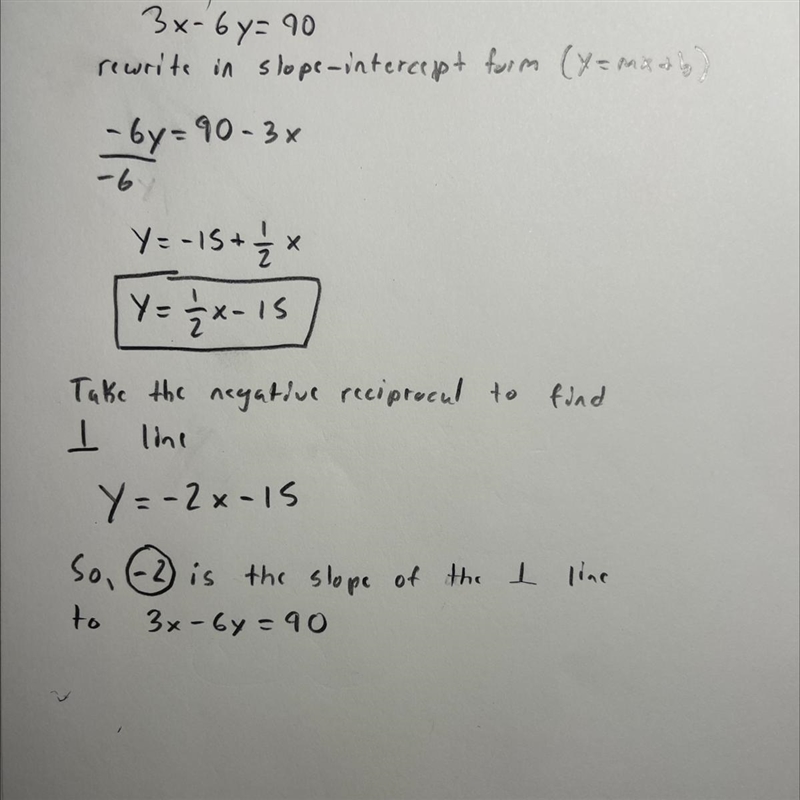 3x-6y=90
rewrite in slope-intercept form (y=mx+b)
-6y=90-3x
-6
y=-15+1/2 x
y=1/2 x-15
Take the negative reciprocal to find
⊥ line
y=-2x-15
So, -2 is the slope of the ⊥ line
to 3x-6y=90